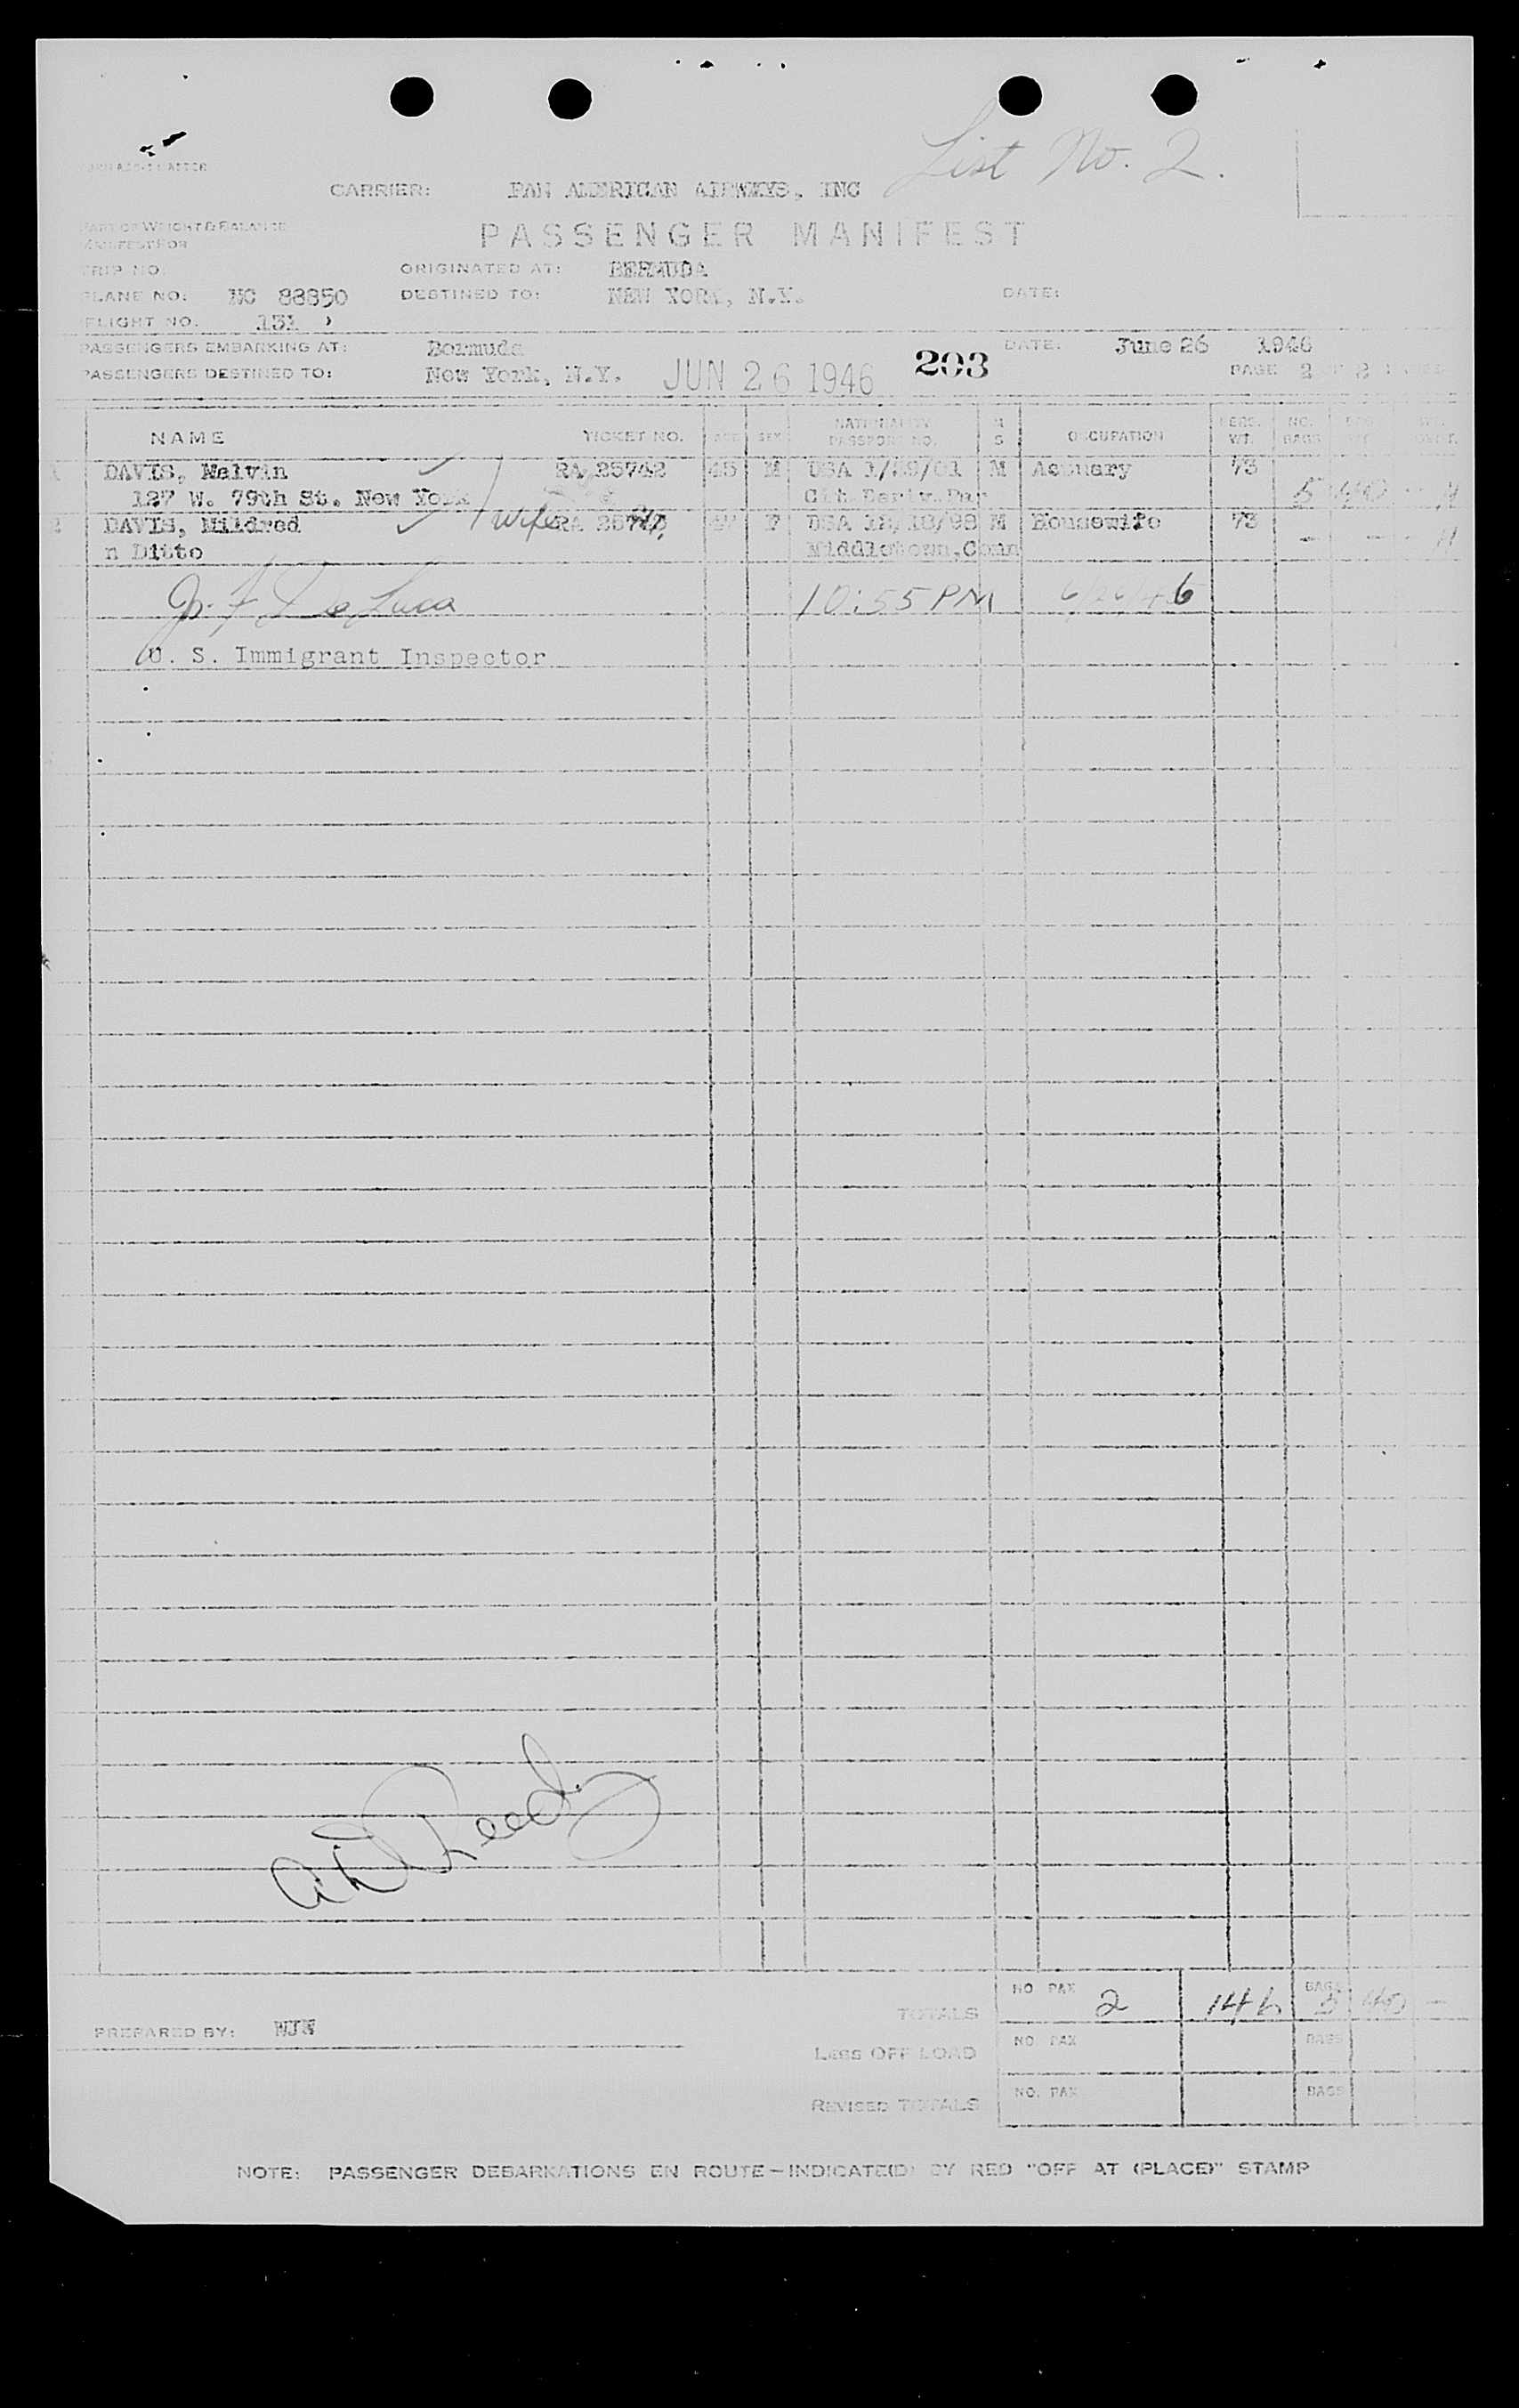 List No. 2.
CARRIER: PAN AMERICAN AIRWAYS, INC
PART OF WEIGHT & BALANCE
MANIFEST FOR
PASSENGER MANIFEST
TRIP NO. ORIGINATED AT: BERMUDA
PLANE NO: NC 88850 DESTINED TO: NEW YORK, N.Y. DATE:
FLIGHT NO. 131
PASSENGERS EMBARKING AT: Bermuda DATE: June 26 1946
PASSENGERS DESTINED TO: New York, N.Y. JUN 26 1946 203 PAGE 2 OF 2
NAME TICKET NO. AGE SEX NATIONALITY PASSPORT NO. M S OCCUPATION PERS. WT. NO. BAGS
DAVIS, Melvin RA 25742 45 M USA M Actuary 73
127 W. 79th St. New York Cit. Deriv. Par 5 40
DAVIS, Mildred Wife RA F USA 12/18/98 M Housewife 73
n Ditto Middletown, Conn
J. F. De Luca 10:55 PM 6/26/46
U. S. Immigrant Inspector
TOTALS NO PAX 2 146 BAGS 5 40 -
PREPARED BY: NJW
LESS OFF LOAD NO. PAX BAGS
REVISED TOTALS NO. PAX BAGS
NOTE: PASSENGER DEBARKATIONS EN ROUTE—INDICATE(D) BY RED "OFF AT (PLACE)" STAMP